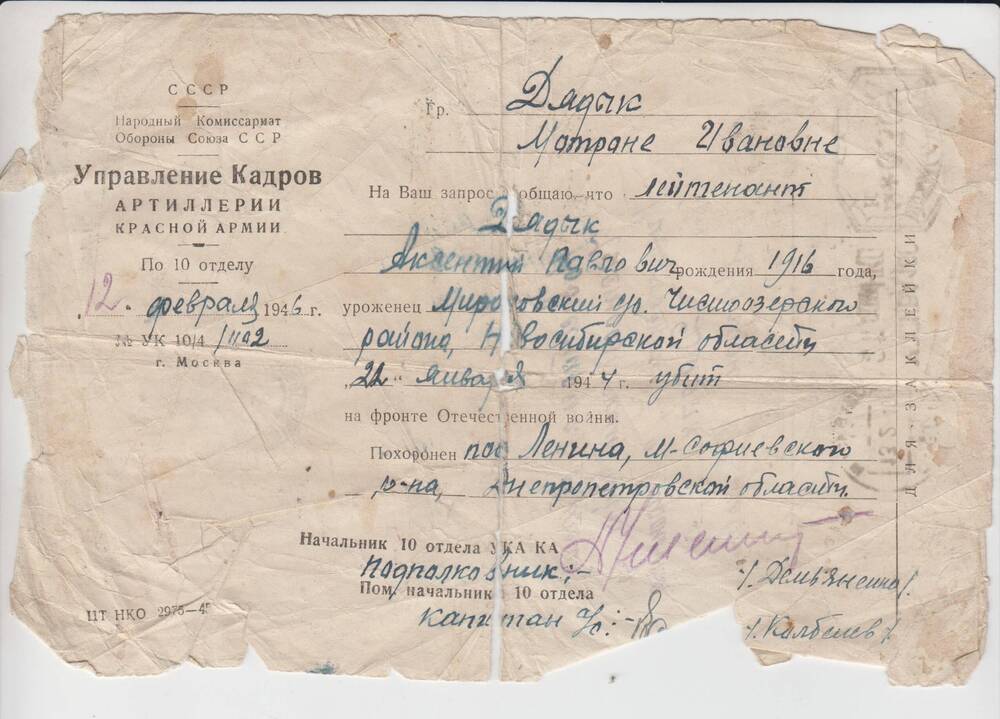 СССР
Народный Комиссариат
Обороны Союза ССР
Управление Кадров
АРТИЛЛЕРИИ
КРАСНОЙ АРМИИ
По 10 отделу
"12" февраля 1946 г.
№ УК 10/4
г. Москва
Гр. Дядык
Мотроне Ивановне
На Ваш запрос ообщаю, что лейтенант
Дядык
Аксентий Павлович рождения 1916 года,
уроженец Чистоозерского
района, Новосибирской области
"22" января 1944 г. убит
на фронте Отечественной войны.
Похоронен пос Ленина, М-Софиевского
р-на, Днепропетровской области.
Начальник 10 отдела УКА КА
подполковник:-
/Демьяненко/.
Пом. начальник 10 отдела
капитан а/с:-
/Колбенев/
ЦТ НКО 2975—45
ДЛЯ ЗАКЛЕЙКИ